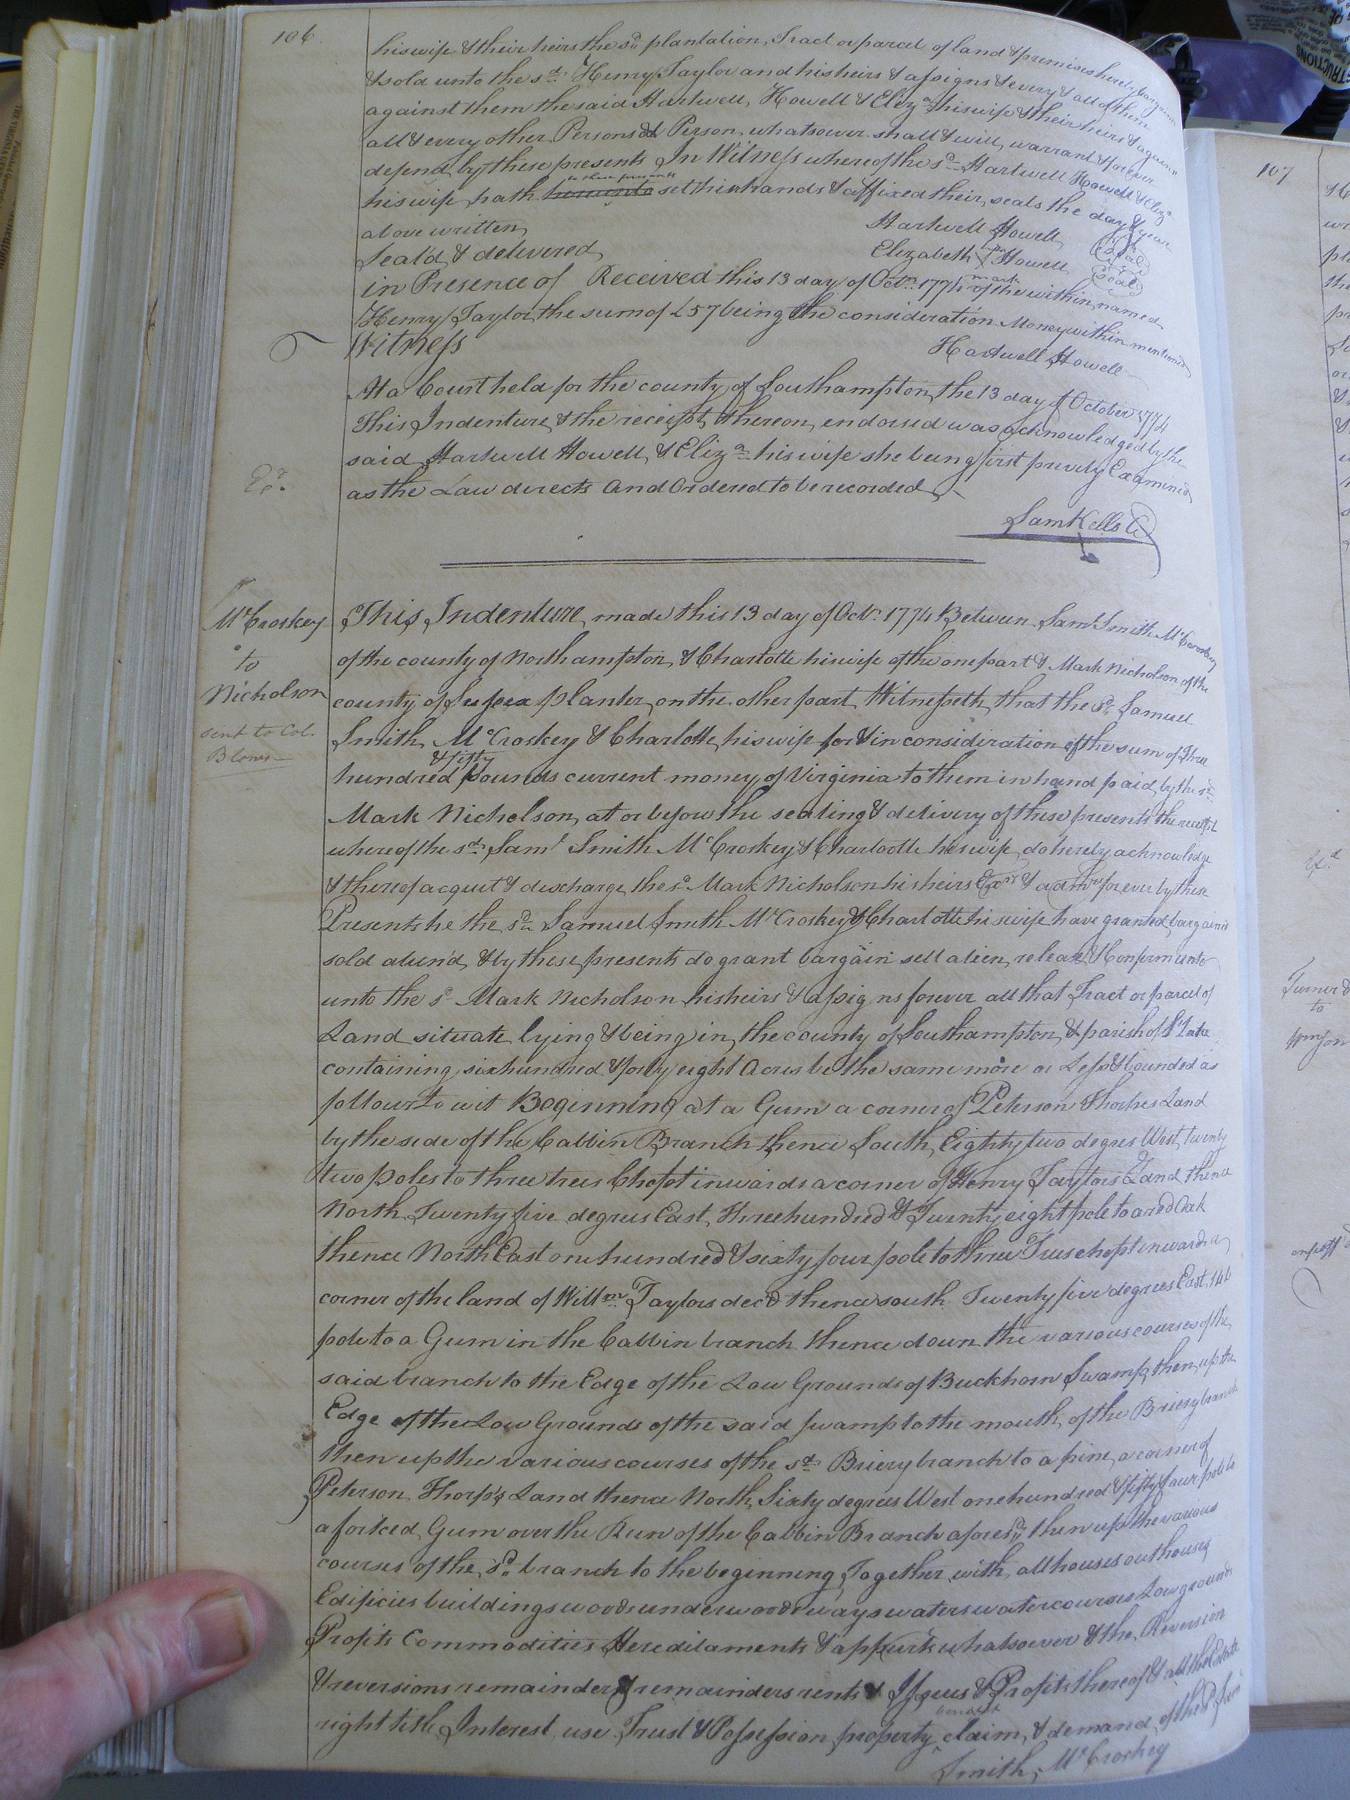 106
his wife & their heirs the sd. plantation, Tract or parcel of land & premises hereby
& sold unto the sd. Henry Taylor and his heirs & assigns & every & all of them
against them the said Hartwell, Howell & Eliza. his wife & their heirs & against
all & every other Persons & Person, whatsover shall & will, warrant & forever
defend by these presents In Witness whereof the sd. Hartwell Howell & Eliza.
his wife hath hereunto to these presents set their hands & affixed their seals the day & year
above written
Hartwell Howell (Seal)
Seal'd & delivered
Elizabeth Howell (Seal)
mark
in Presence of Received this 13 day of Octr. 1774 of the within named
Henry Taylor the sum of £57 being the consideration Money within mentioned
Witness
Hartwell Howell
At a Court held for the county of Southampton the 13 day of October 1774
This Indenture & the receipt thereon, endorsed was acknowledged by the
said Hartwell Howell & Eliza. his wife she being first privily Examined
as the Law directs And Ordered to be recorded
Ex.d
Sam Kello C
McCroskey
to
Nicholson
sent to Col.
Blows
This Indenture made this 13 day of Octr. 1774 Between Saml. Smith McCroskey
of the county of Northampton, & Charlotte his wife of the one part & Mark Nicholson of the
county of Sussex planter, on the other part, Witnesseth, that the sd. Samuel
Smith McCroskey & Charlotte, his wife for & in consideration of the sum of three
hundred & fifty pounds current money of Virginia to them in hand paid by the sd.
Mark Nicholson, at or before the sealing & delivery of these presents the receipt
where of the sd. Saml. Smith McCroskey & Charlootte his wife do hereby acknowledge
& there of acquit & discharge the sd. Mark Nicholson his heirs Exrs & admrs forever by these
Presents he the sd. Samuel Smith McCroskey & Charlotte his wife have granted, bargain'd
sold alien'd, & by these presents do grant bargain sell alien, release & Confirm unto
unto the sd. Mark Nicholson his heirs & assigns forever all that Tract or parcel of
Land situate lying & being in the county of Southampton, & parish of St. Luke
containing six hundred & forty eight Acres be the same more or Less & bounded as
follows to wit Beginning at a Gum a corner of Peterson Thorpes Land
by the side of the Cabbin Branch thence South, Eighty two degrees West, twenty
two poles to three trees Chopt inwards a corner of Henry Taylors Land thence
North Twenty five degrees East, Three hundred & Twenty eight pole to a red Oak
thence North East one hundred & sixty four pole to three Trees chopt inwards a
corner of the land of Willm. Taylors decd. thence south Twenty five degrees East, 146
pole to a Gum in the Cabbin branch thence down the various courses of the
said branch to the Edge of the Low Grounds of Buckhorn Swamp, then up the
Edge of the Low Grounds of the said swamp to the mouth, of the Briery branch
then up the various courses of the sd. Briery branch to a pine, a corner of
Peterson Thorp's Land thence North, Sixty degrees West one hundred & fifty four pole to
a forked Gum over the Run of the Cabbin Branch aforesd. then up the various
courses of the sd. branch to the beginning Together with, all houses outhouses
Edifices buildings woods underwoods ways waters watercourses Low grounds
Profits Commodities Hereditaments & appurts whatsoever & the Reversion
& reversions remainder & remainders rents & Issues & Profits thereof & all the Estate
right title, Interest, use Trust & Possession property claim, & demand, of the sd. Saml
Smith, McCroskey
107
Ex.d
Turner &
to